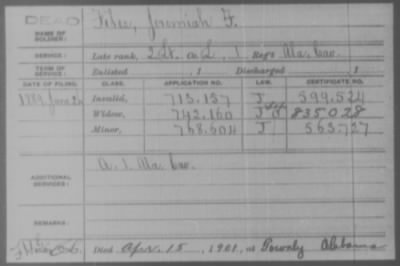 DEAD
NAME OF SOLDIER: Files, Jeremiah F.
SERVICE: Late rank, 2 Lt. Co. L, 1 Reg't Ala. Cav.
TERM OF SERVICE: Enlisted , 1 Discharged , 1
DATE OF FILING. CLASS. APPLICATION NO. LAW. CERTIFICATE NO.
June Invalid, 713,157 J 599,524
Widow, 742,160 835028
Minor, 768,604 J 563,727
ADDITIONAL SERVICES: Ala. Cav.
REMARKS:
Died Apr. 15, 1901, at Townly Alabama